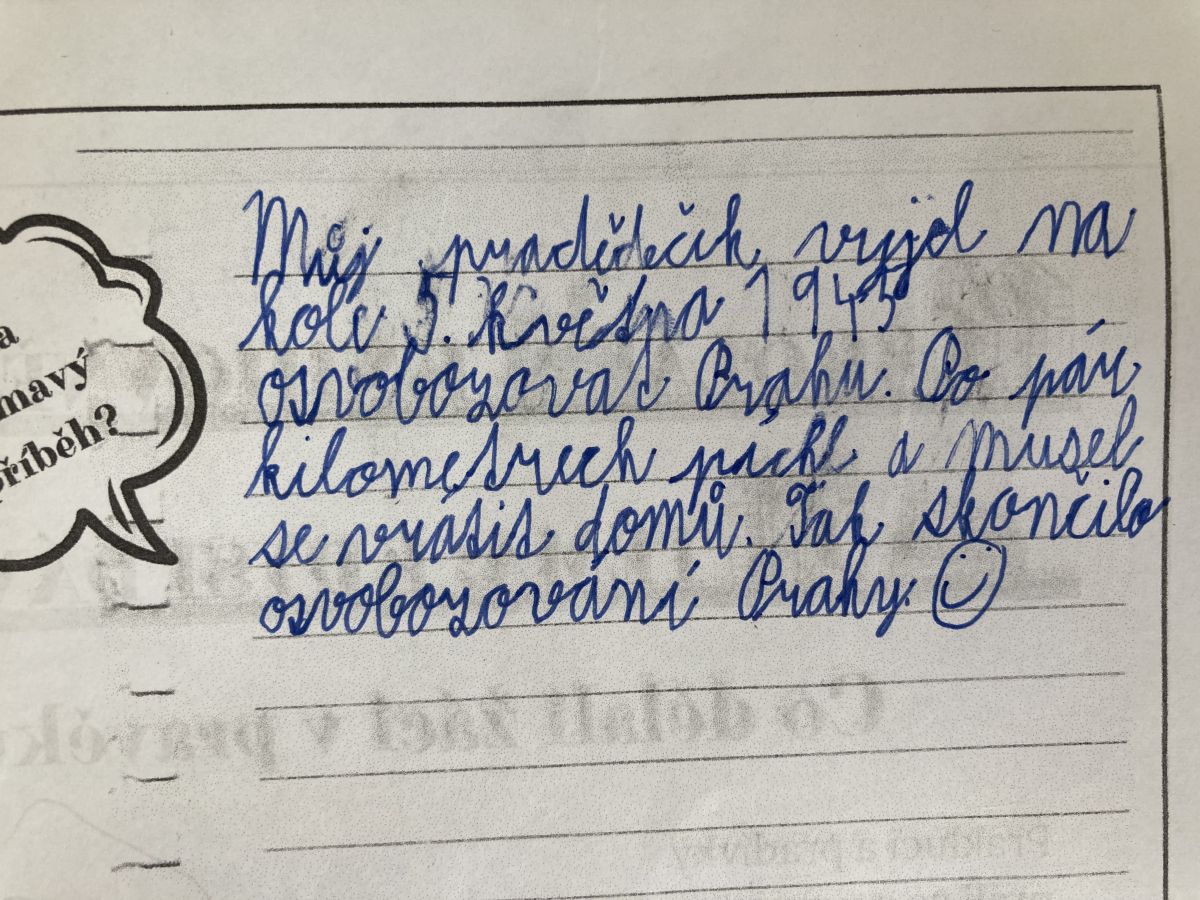 a
mavý
příběh?
Můj pradědeček vyjel na
kole 5. května 1945
osvobozovat Prahu. Po pár
kilometrech píchl a musel
se vrátit domů. Tak skončilo
osvobozování Prahy. ☺
Co dělali žáci v pravěku